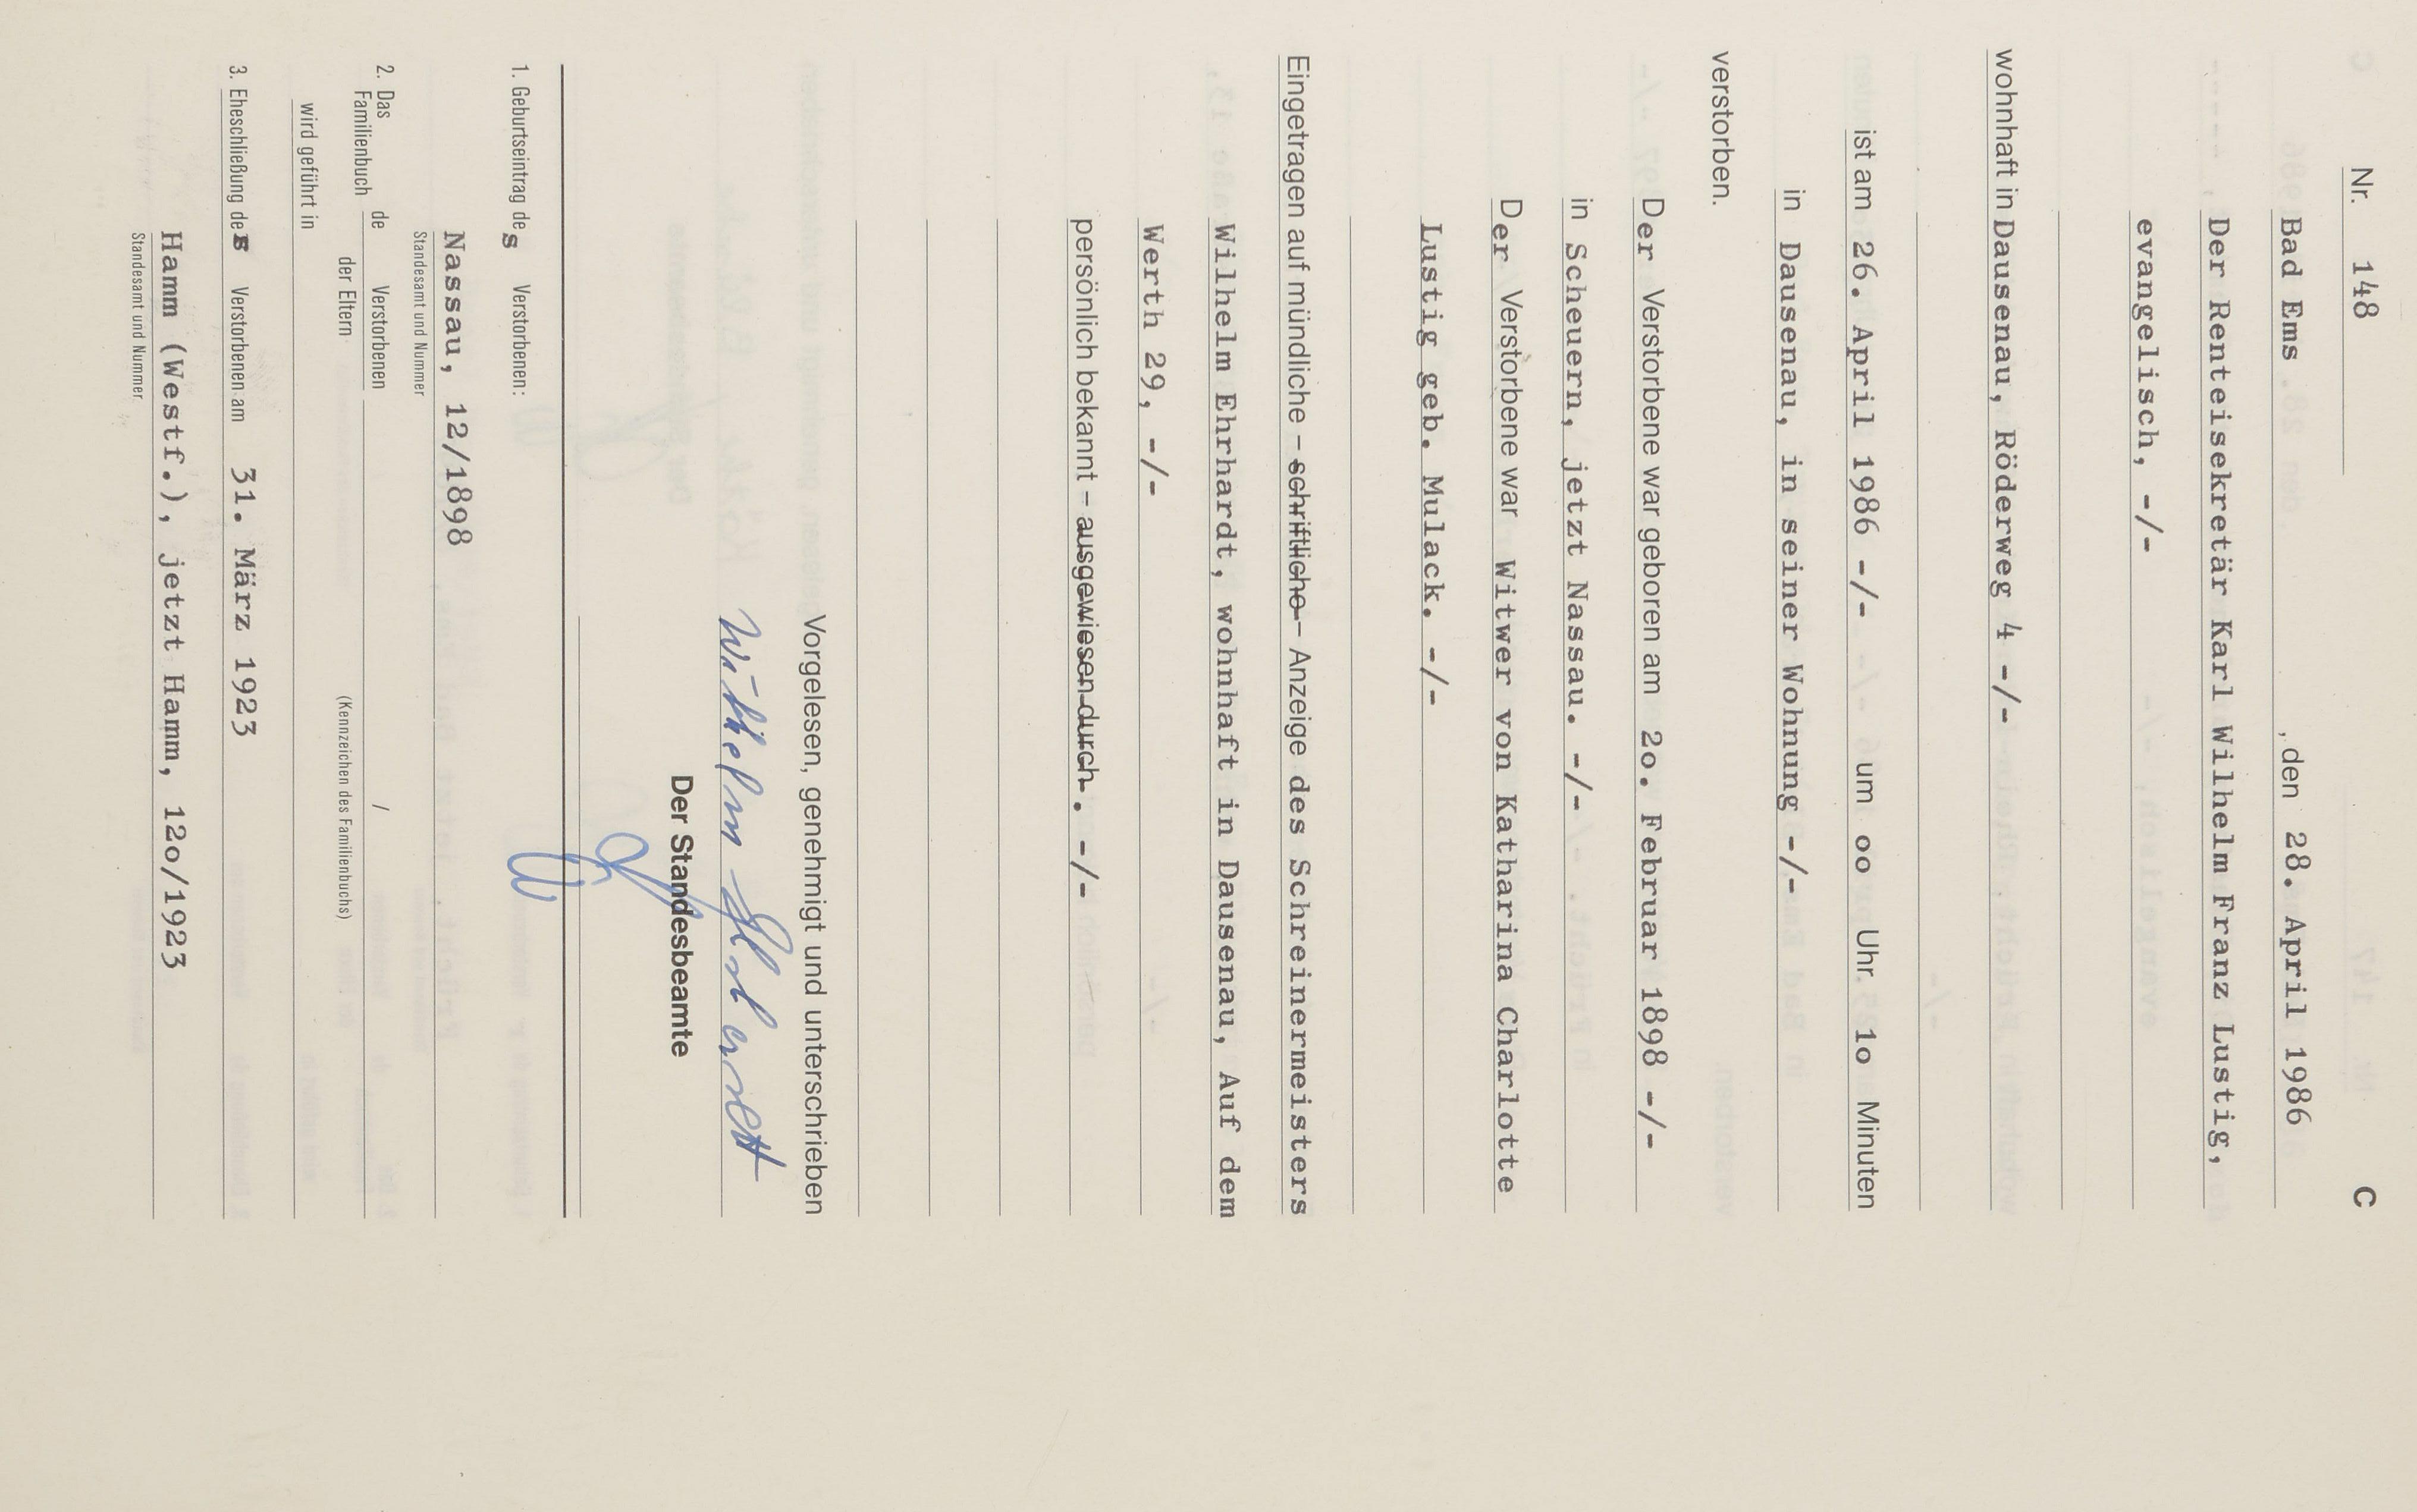 Nr. 148 C
Bad Ems, den 28. April 1986
Der Renteisekretär Karl Wilhelm Franz Lustig,
evangelisch, -/-
wohnhaft in Dausenau, Röderweg 4 -/-
ist am 26. April 1986 -/- um oo Uhr 1o Minuten
in Dausenau, in seiner Wohnung -/-
verstorben.
Der Verstorbene war geboren am 2o. Februar 1898 -/-
in Scheuern, jetzt Nassau. -/-
Der Verstorbene war Witwer von Katharina Charlotte
Lustig geb. Mulack. -/-
Eingetragen auf mündliche – schriftliche – Anzeige des Schreinermeisters
Wilhelm Ehrhardt, wohnhaft in Dausenau, Auf dem
Werth 29, -/-
persönlich bekannt – ausgewiesen durch. -/-
Vorgelesen, genehmigt und unterschrieben
Wilhelm Ehrhardt
Der Standesbeamte
1. Geburtseintrag des Verstorbenen:
Nassau, 12/1898
Standesamt und Nummer
2. Das Familienbuch de Verstorbenen /
der Eltern (Kennzeichen des Familienbuchs)
wird geführt in
3. Eheschließung des Verstorbenen am 31. März 1923
Hamm (Westf.), jetzt Hamm, 12o/1923
Standesamt und Nummer